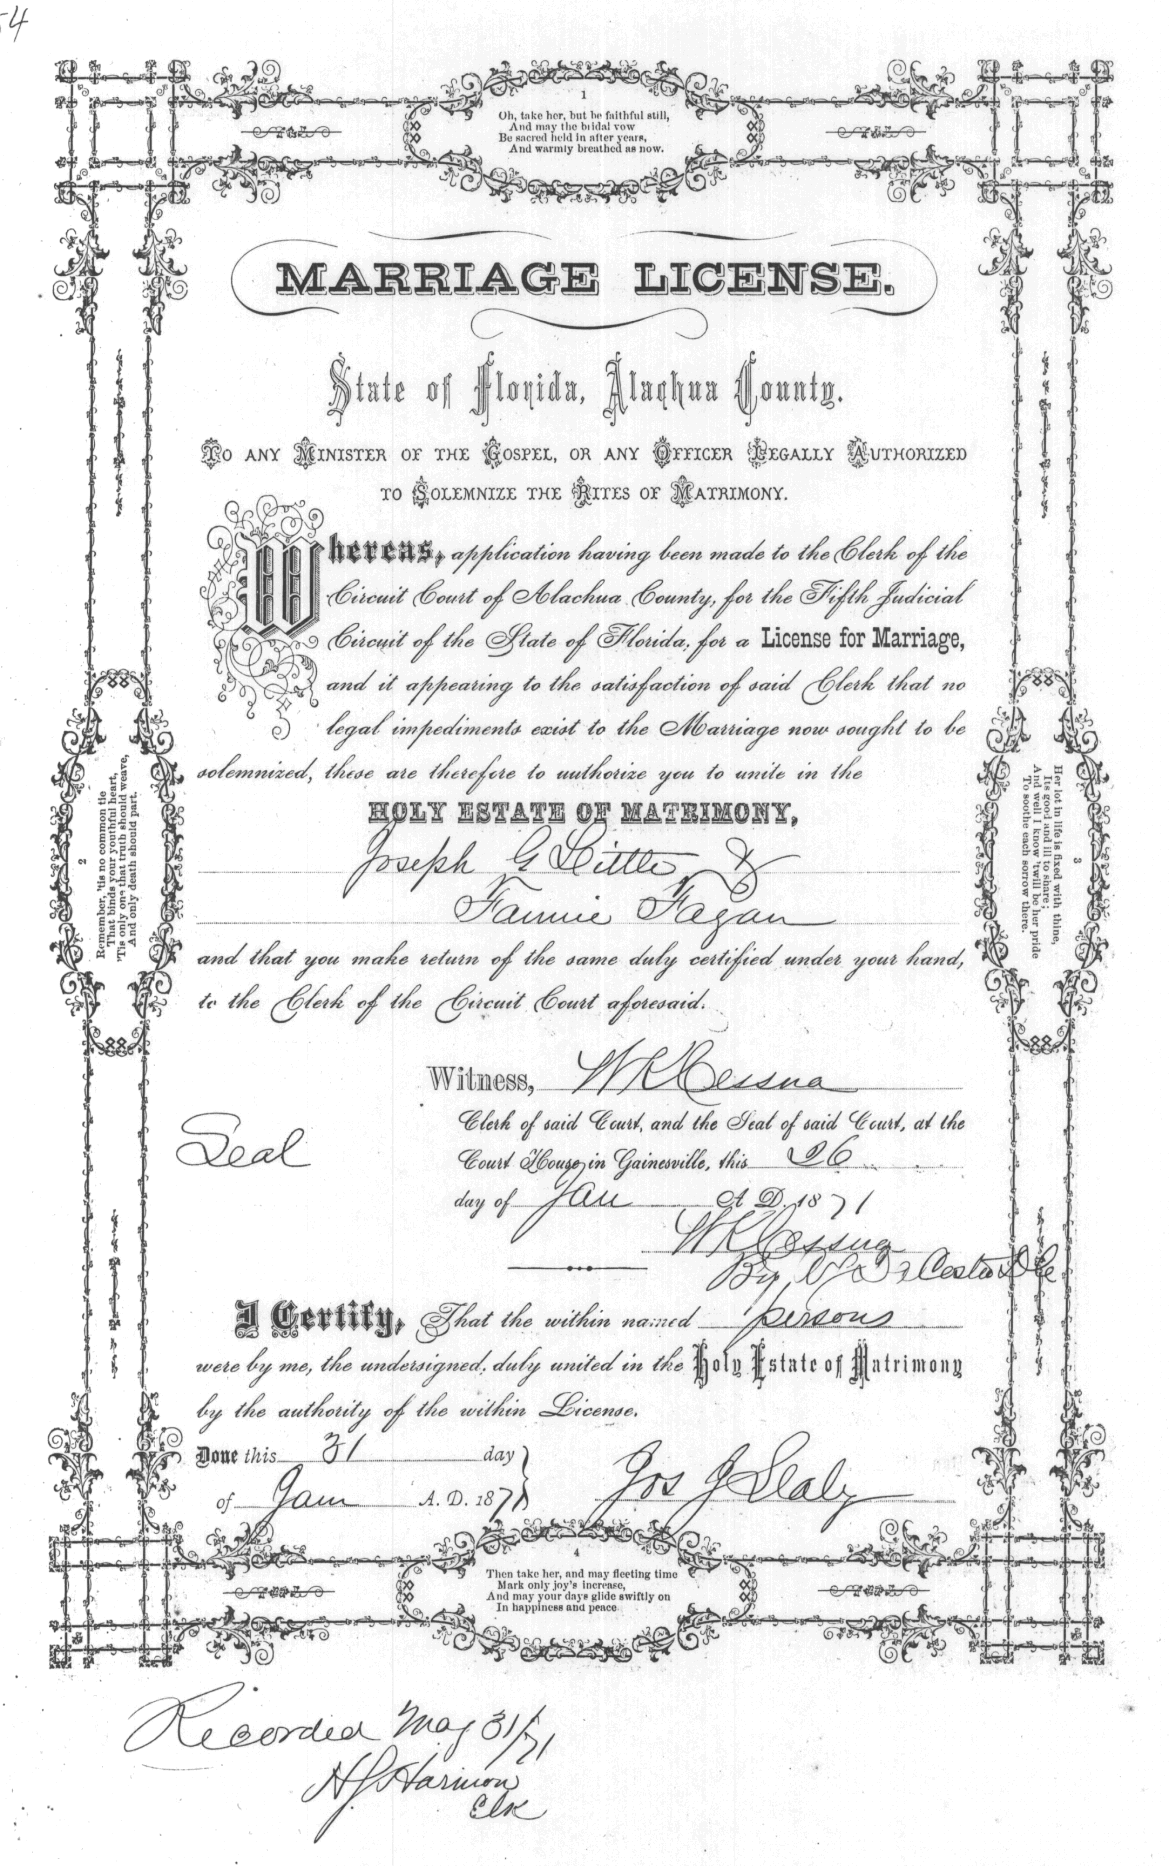 54
1
Oh, take her, but be faithful still,
And may the bridal vow
Be sacred held in after years,
And warmly breathed as now.
MARRIAGE LICENSE.
State of Florida, Alachua County.
TO ANY MINISTER OF THE GOSPEL, OR ANY OFFICER LEGALLY AUTHORIZED
TO SOLEMNIZE THE RITES OF MATRIMONY.
Whereas, application having been made to the Clerk of the
Circuit Court of Alachua County, for the Fifth Judicial
Circuit of the State of Florida, for a License for Marriage,
and it appearing to the satisfaction of said Clerk that no
legal impediments exist to the Marriage now sought to be
solemnized, these are therefore to authorize you to unite in the
HOLY ESTATE OF MATRIMONY,
Joseph G Little &
Fannie Fagan
and that you make return of the same duly certified under your hand,
to the Clerk of the Circuit Court aforesaid.
2
Remember, 'tis no common tie
That binds your youthful heart,
'Tis only one that truth should weave,
And only death should part.
3
Her lot in life is fixed with thine,
Its good and ill to share;
And well I know 'twill be her pride
To soothe each sorrow there.
Witness, W K Cessna
Clerk of said Court, and the Seal of said Court, at the
Seal
Court House in Gainesville, this 26
day of Jan A. D. 1871
W K Cessna
By Costa D C
I Certify, That the within named persons
were by me, the undersigned, duly united in the Holy Estate of Matrimony
by the authority of the within License.
Done this 31 day
of Jan A. D. 1871
Jos J Sealy
4
Then take her, and may fleeting time
Mark only joy's increase,
And may your days glide swiftly on
In happiness and peace
Recorded May 31/71
H J Harmon
Clk